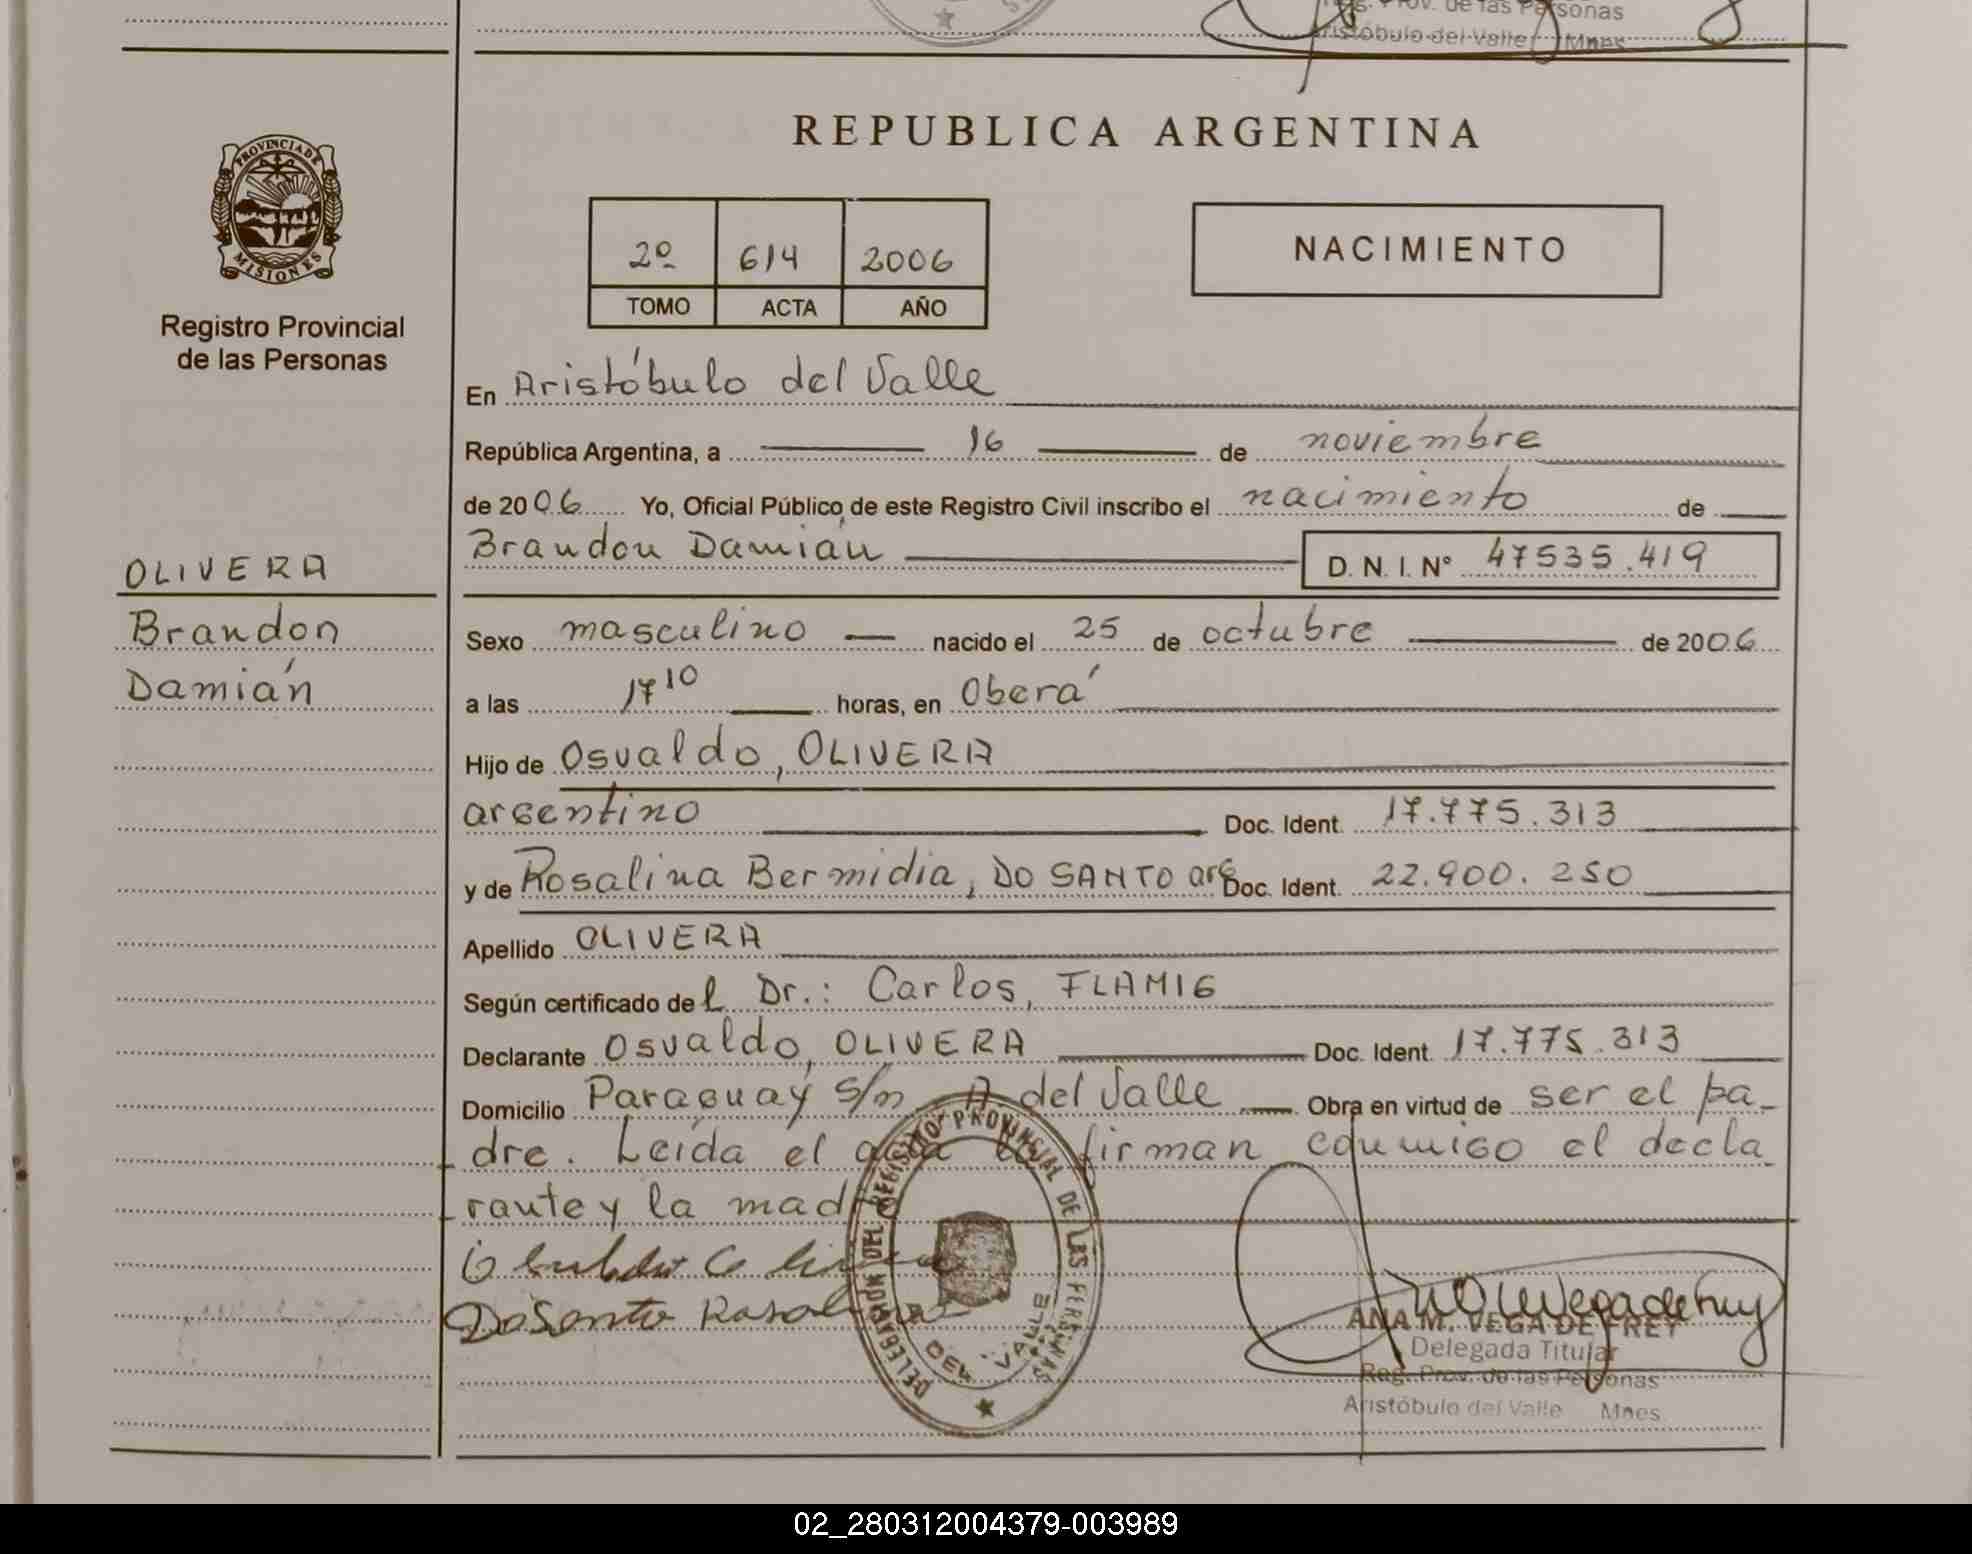 Reg. Prov. de las Personas
Aristóbulo del Valle Mnes
REPUBLICA ARGENTINA
PROVINCIA DE
MISIONES
Registro Provincial
de las Personas
2º 614 2006
TOMO ACTA AÑO
NACIMIENTO
En Aristóbulo del Valle
República Argentina, a 16 de noviembre
de 2006 Yo, Oficial Público de este Registro Civil inscribo el nacimiento de
Brandon Damián D. N. I. Nº 47535.419
OLIVERA
Brandon
Damián
Sexo masculino nacido el 25 de octubre de 2006
a las 17 10 horas, en Oberá
Hijo de Osvaldo, OLIVERA
argentino Doc. Ident. 17.775.313
y de Rosalina Bermidia, DO SANTO arg Doc. Ident. 22.900.250
Apellido OLIVERA
Según certificado del Dr.: Carlos, FLAMIG
Declarante Osvaldo, OLIVERA Doc. Ident. 17.775.313
Domicilio Paraguay s/n A del Valle Obra en virtud de ser el pa-
dre. Leída el acta la firman conmigo el decla
rante y la madre
DoSanto Rosalina
DELEGACIÓN DEL REGISTRO PROVINCIAL DE LAS PERSONAS
DEL VALLE
ANA M. VEGA DE FREY
Delegada Titular
Reg. Prov. de las Personas
Aristóbulo del Valle Mnes
02_280312004379-003989